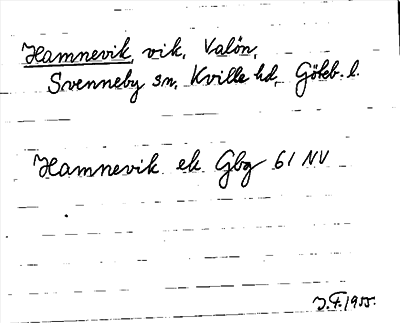 Hamnevik, vik, Valön,
Svenneby sn, Kville hd, Göteb. l.
Hamnevik ek Gbg 61 NV
J.F. 1955.